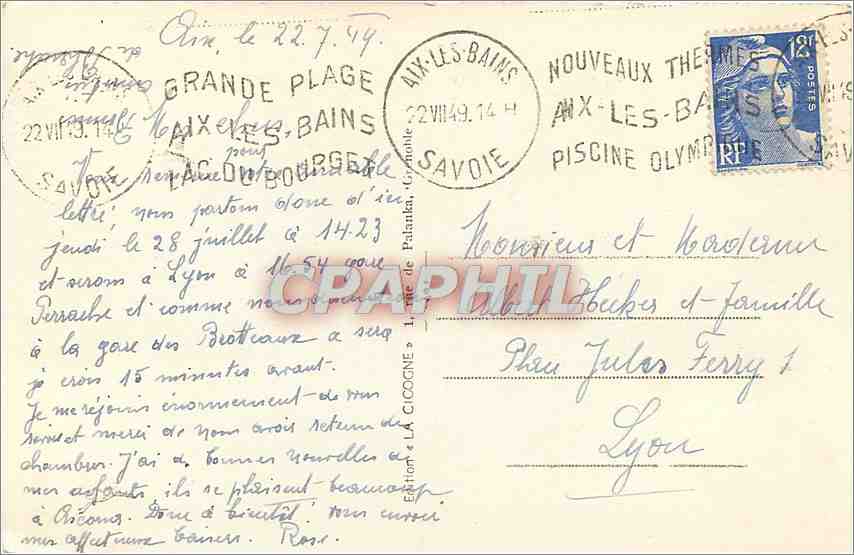 Aix, le 22.7.49.
GRANDE PLAGE
AIX-LES-BAINS
LAC DU BOURGET
AIX-LES-BAINS
22 VII 49. 14 H
SAVOIE
NOUVEAUX THERMES
AIX-LES-BAINS
PISCINE OLYMPIQUE
12F
POSTES
RF
22 VII 49. 14
SAVOIE
pour
lettre, nous partons donc d'ici
jeudi le 28 juillet à 14.23
et serons à Lyon à 16.54 gare
Perrache et comme nous
à la gare des Brotteaux a sera
je crois 15 minutes avant.
Je me réjouis énormement de vous
et merci de nous avoir retenu des
chambres. J'ai de bonnes nouvelles de
mes enfants, ils se plaisent beaucoup
à Ascona. Donc à bientôt! vous envoie
mes affectueux baisers. Rose.
Edition « LA CICOGNE » 1, rue de Palanka, Grenoble
Monsieur et Madame
Albert Hecker et famille
Place Jules Ferry 1
Lyon
CPAPHIL